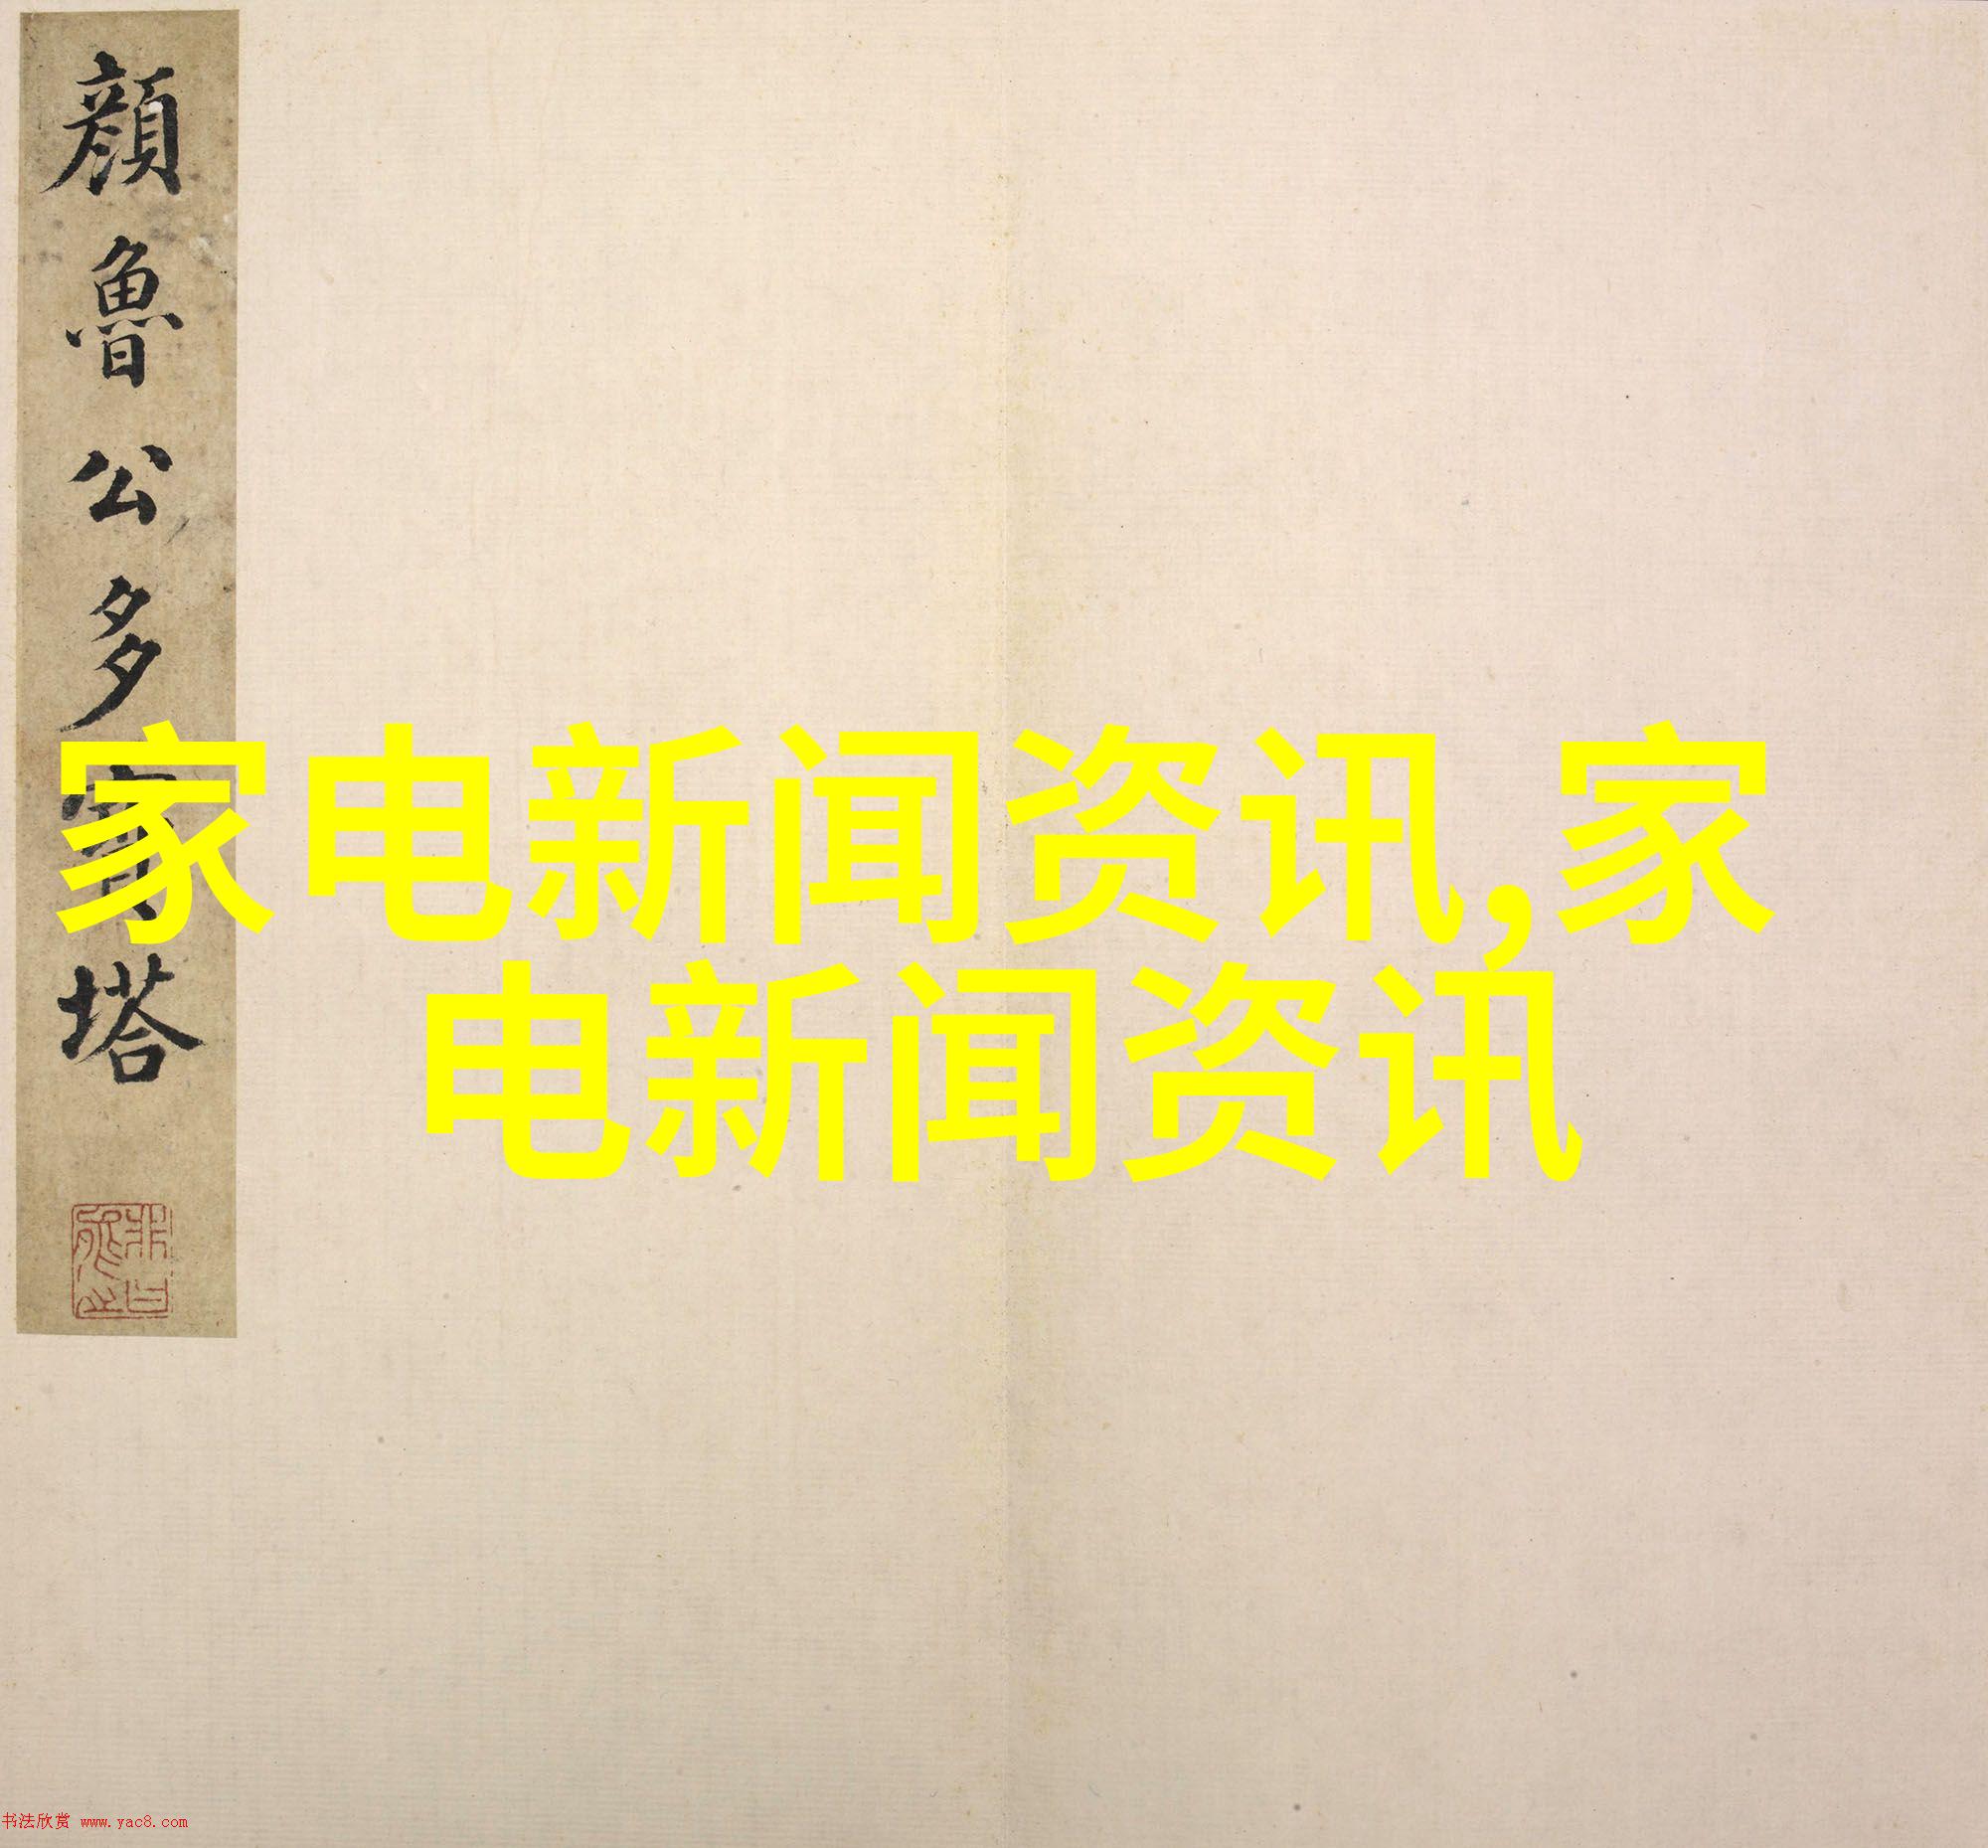 顏魯公多寶塔
家电新闻资讯,家
电新闻资讯
书法欣赏 www.yac8.com